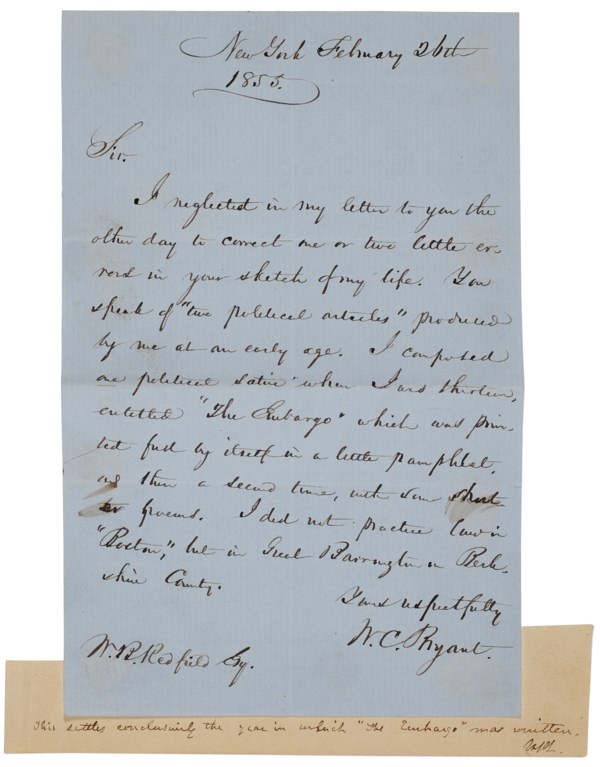 New York February 26th
1855.
Sir.
I neglected in my letter to you the
other day to correct one or two little er-
rors in your sketch of my life. You
speak of "two political articles" produced
by me at an early age. I composed
one political satire when I was thirteen,
entitled "The Embargo" which was prin-
ted first by itself in a little pamphlet,
and then a second time, with some short
er poems. I did not practice law in
"Boston," but in Great Barrington in Berk-
shire County.
Yours respectfully
W. C. Bryant.
W. B. Redfield Esq.
This settles conclusively the year in which "The Embargo" was written.